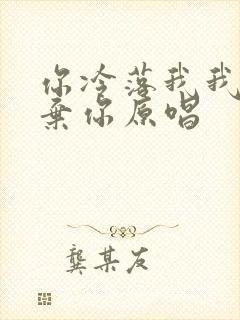 你冷落我我
弃你原唱
龚某友